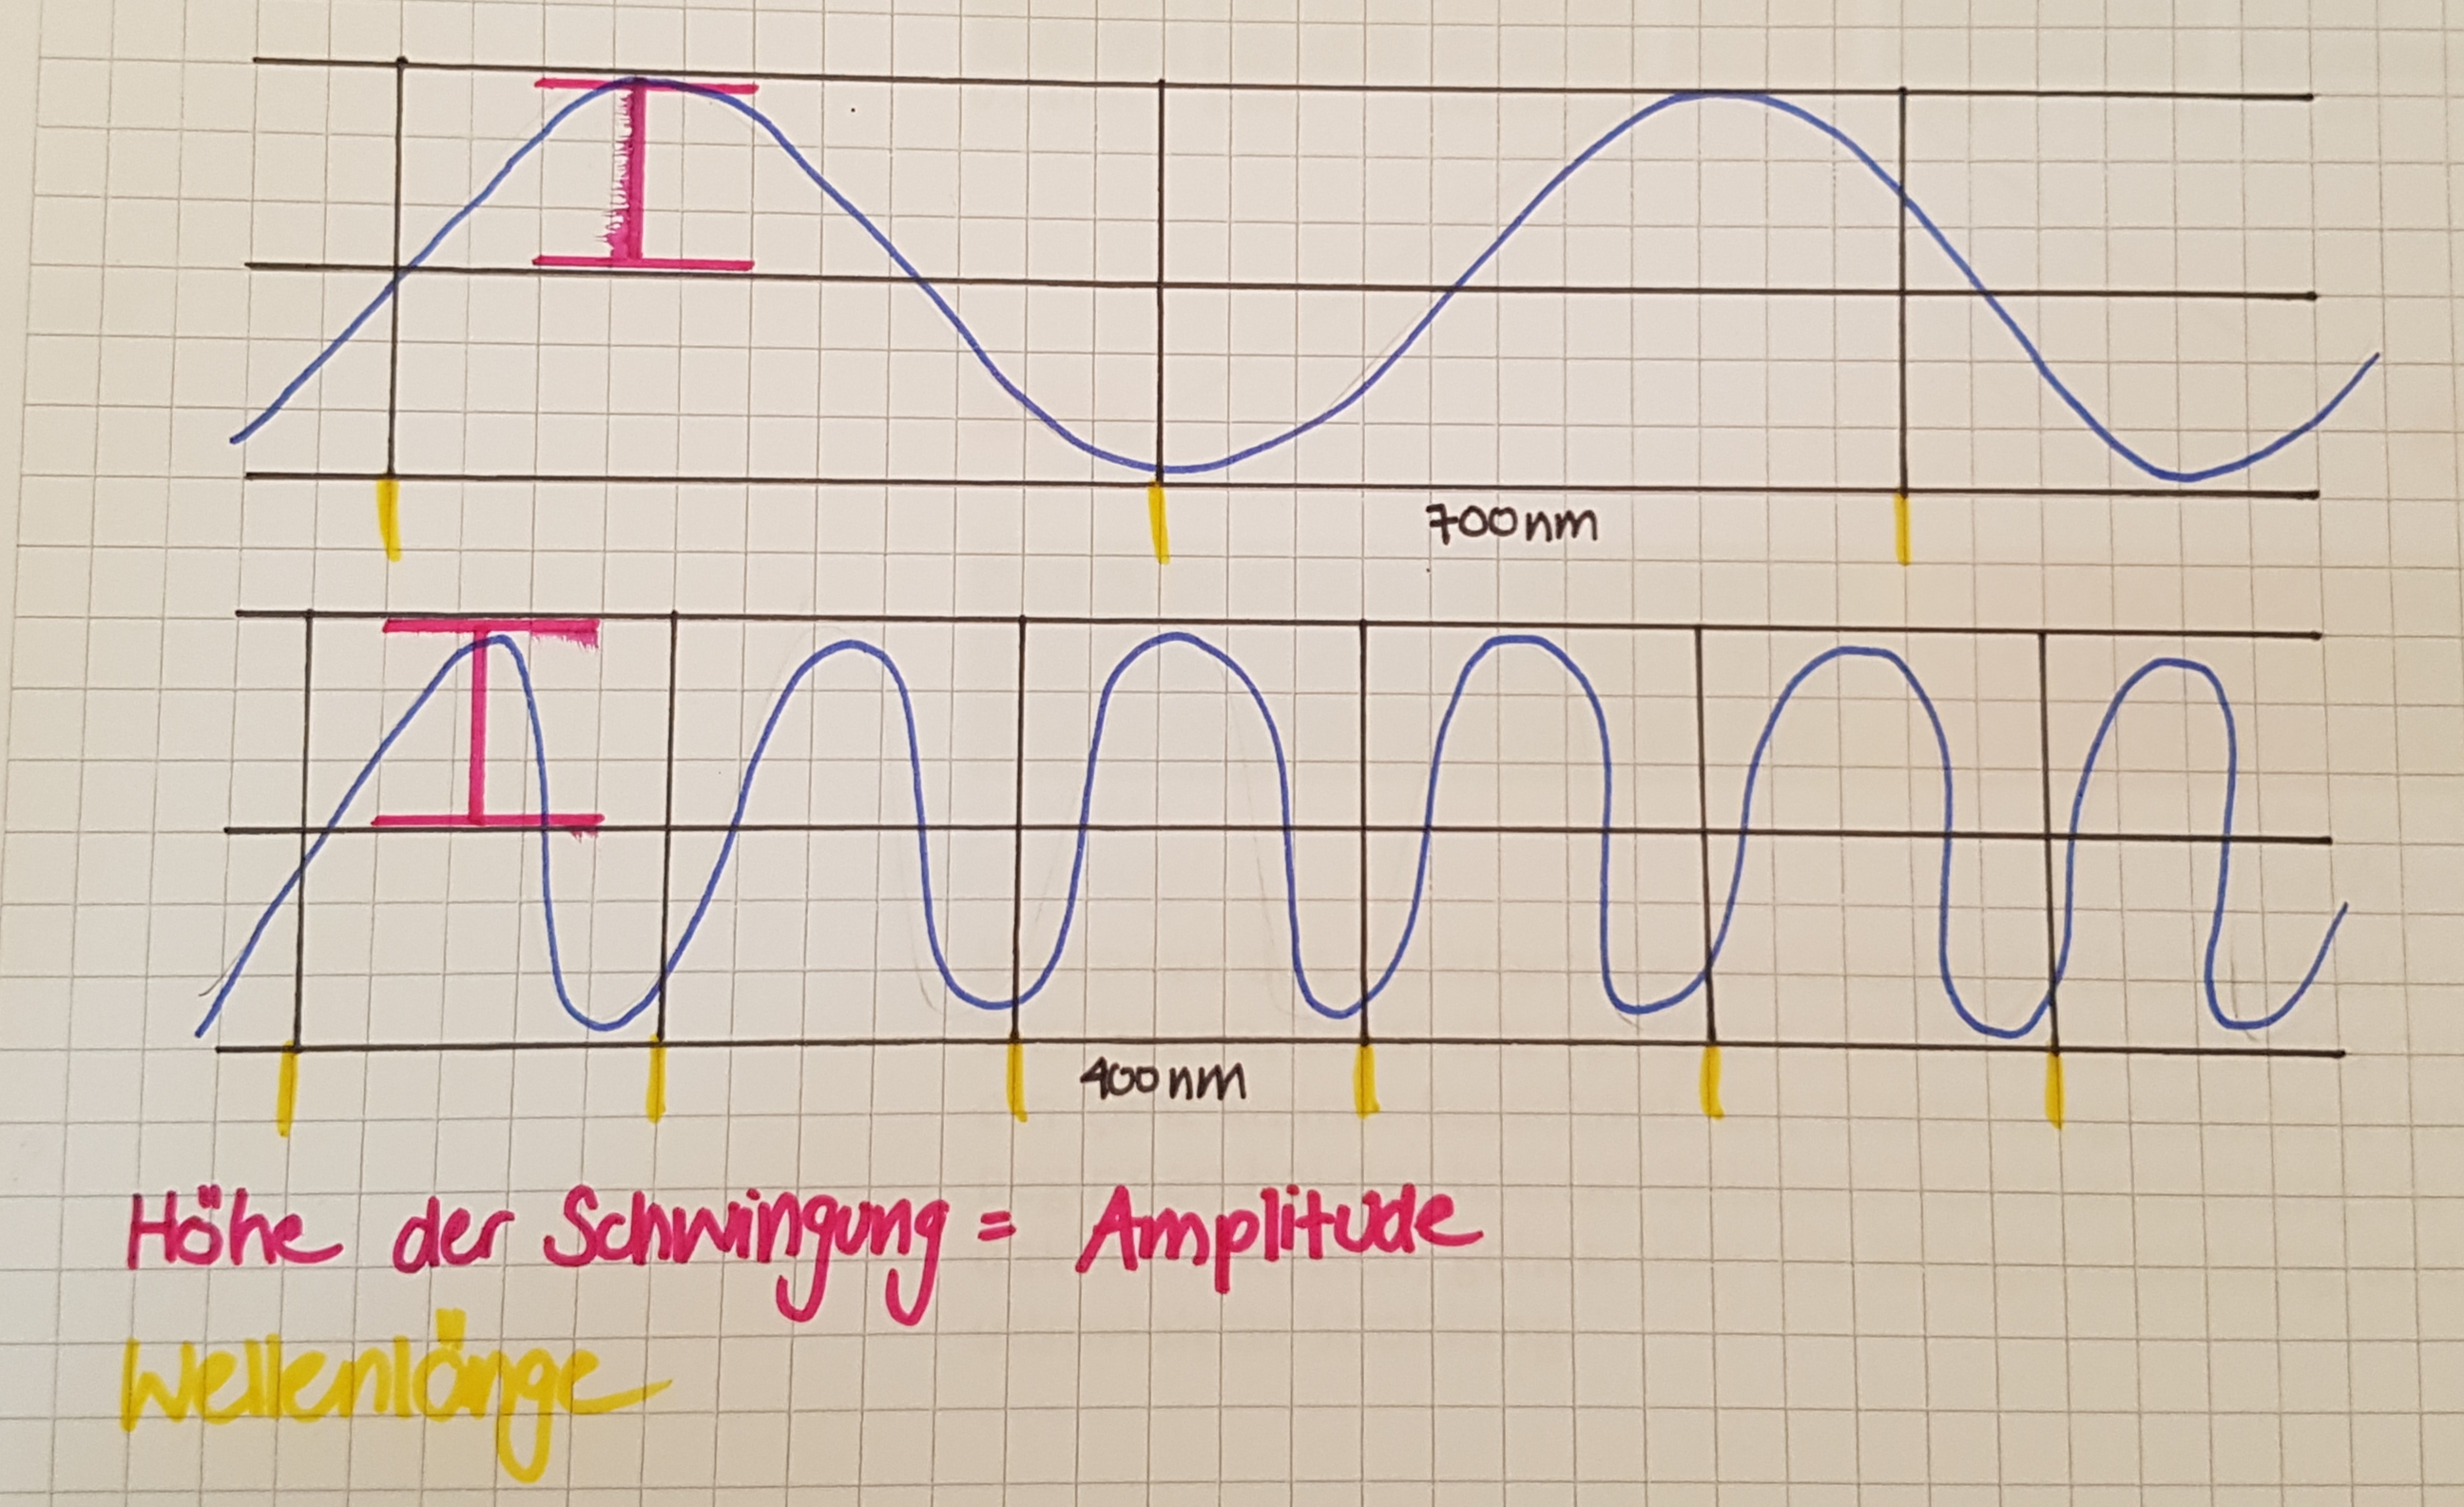 700nm
400nm
Höhe der Schwingung = Amplitude
Wellenlänge